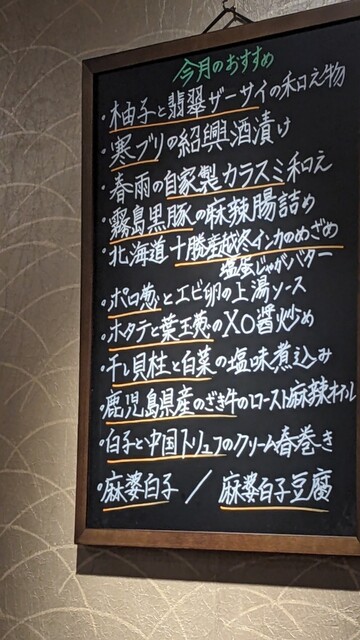 今月のおすすめ
・柚子と翡翠ザーサイの和え物
・寒ブリの紹興酒漬け
・春雨の自家製カラスミ和え
・霧島黒豚の麻辣腸詰め
北海道十勝産越冬インカのめざめ
塩蛋じゃがバター
・ポロ葱とエビ卵の上湯ソース
・ホタテと葉玉葱のXO醤炒め
・干し貝柱と白菜の塩味煮込み
・鹿児島県産のざき牛のロースト麻辣オイル
・白子と中国トリュフのクリーム春巻き
・麻婆白子 / 麻婆白子豆腐